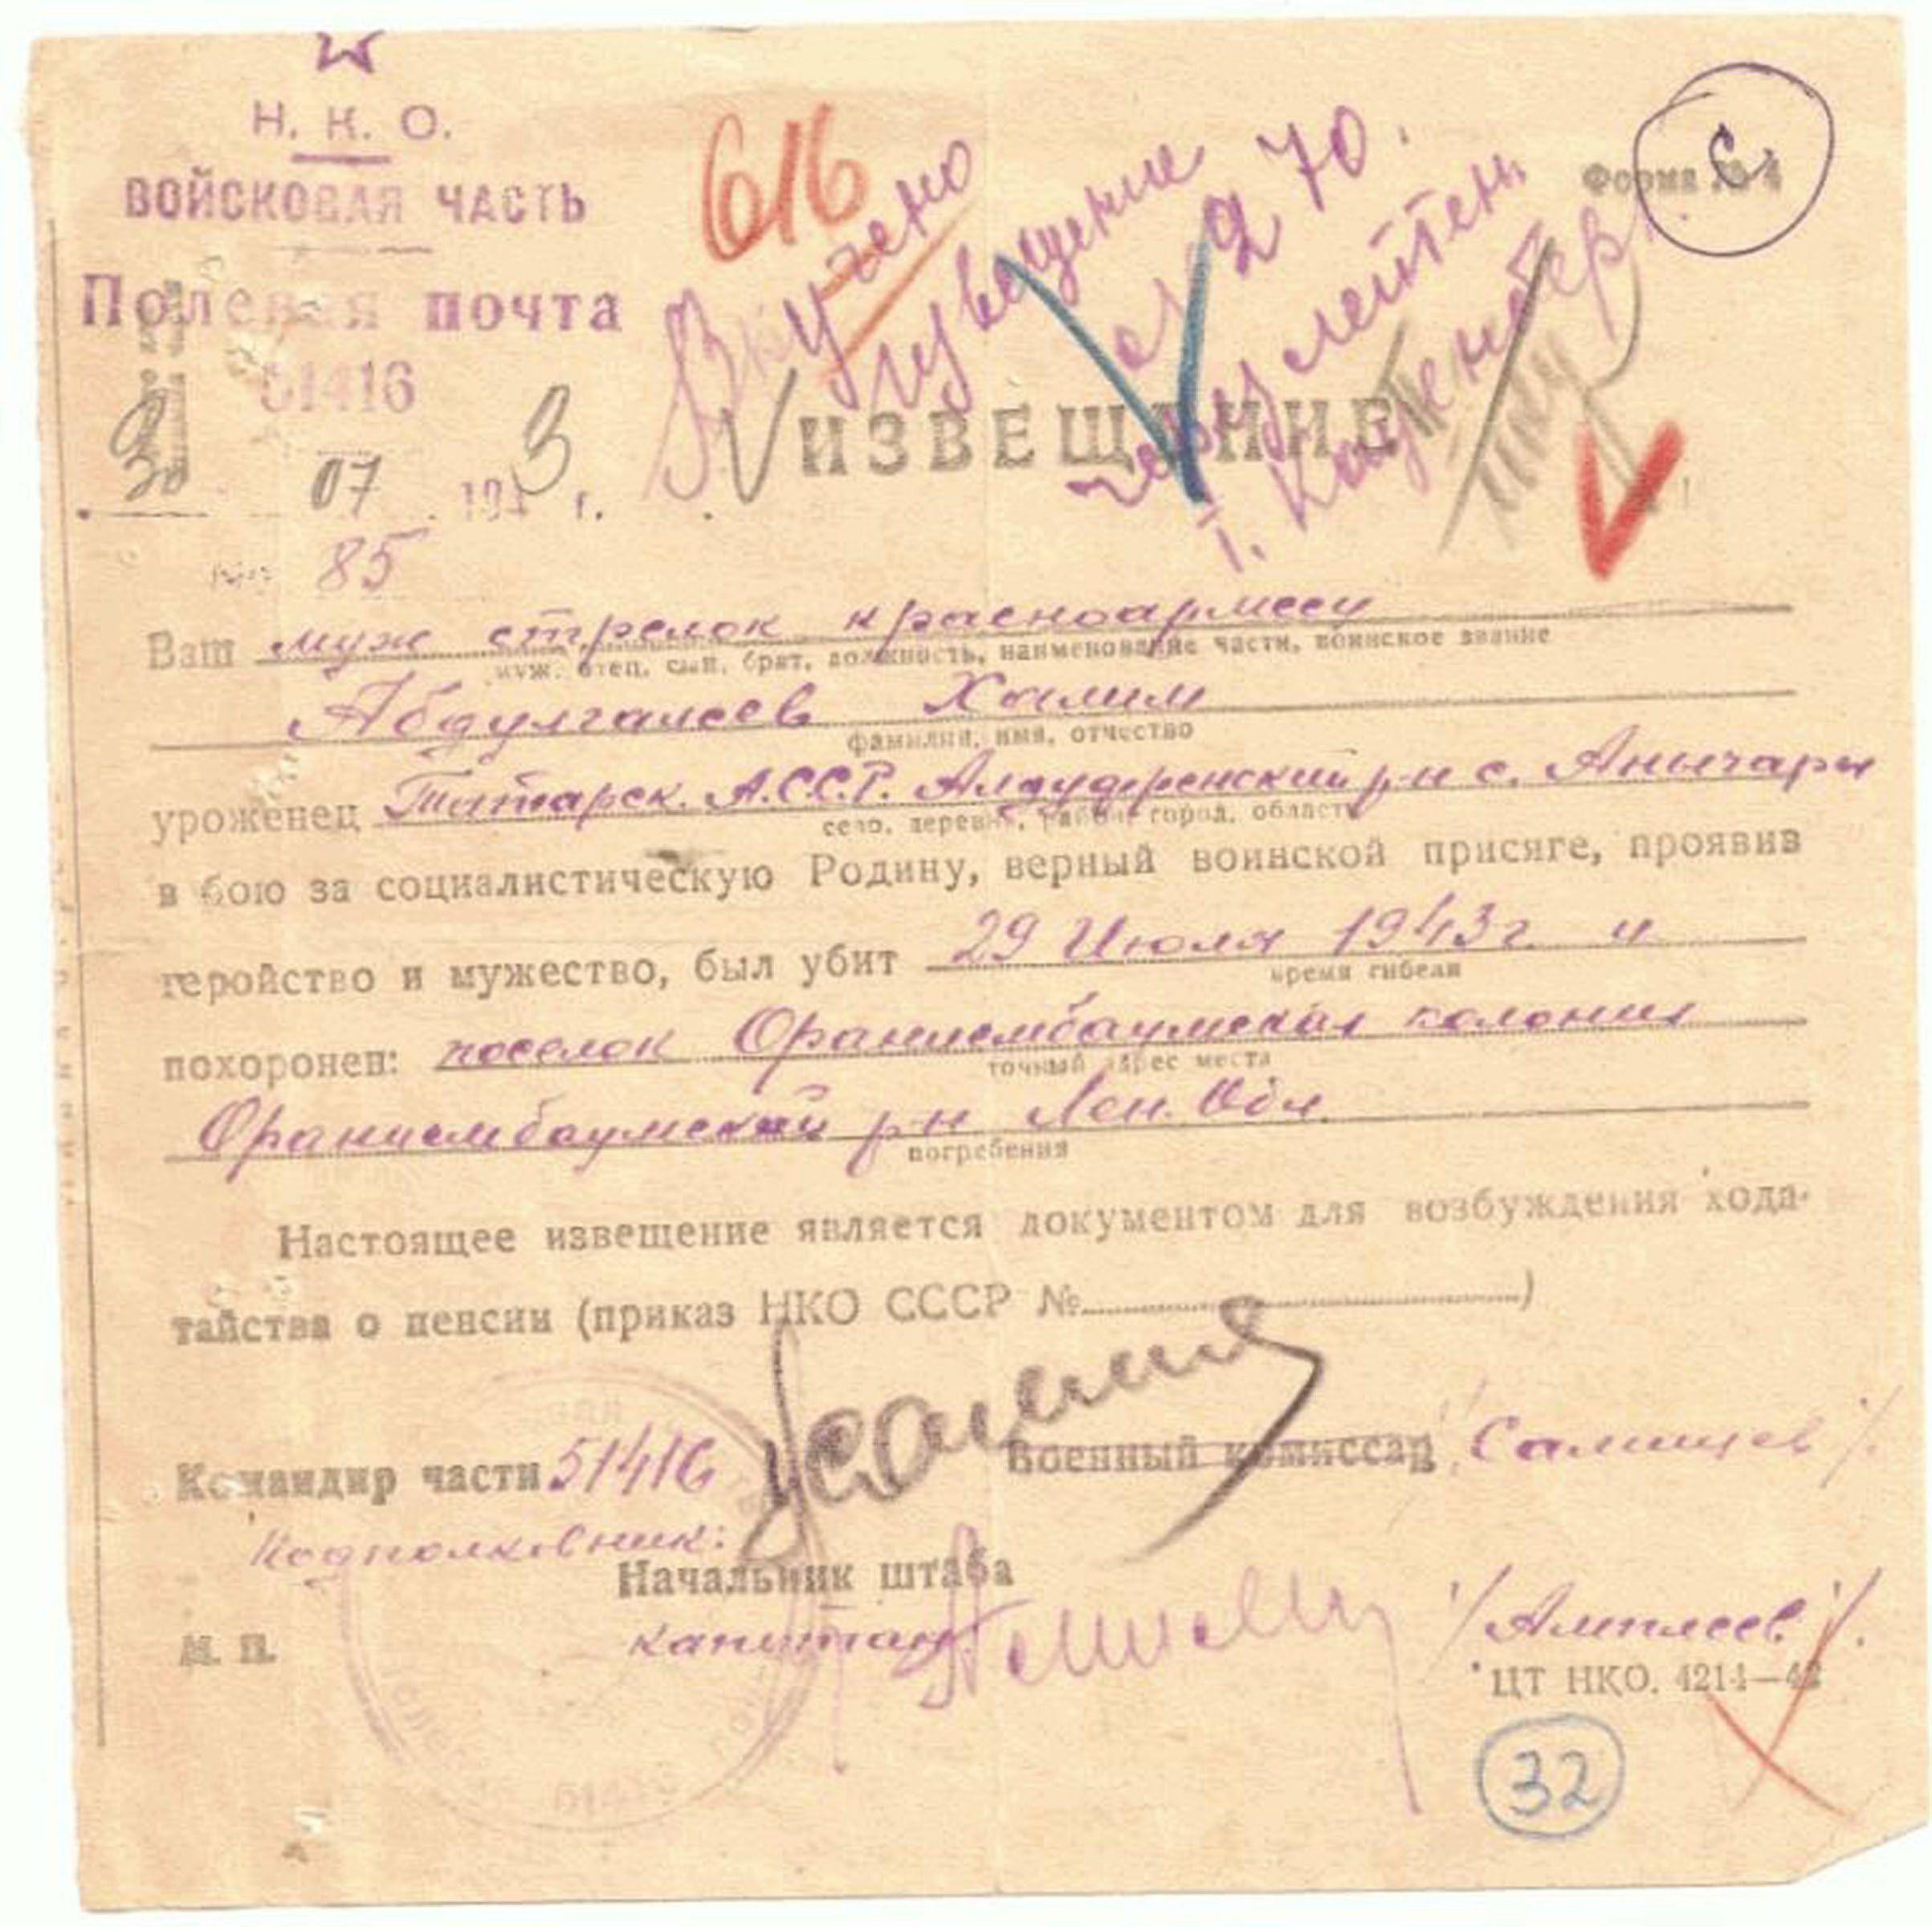 Н. К. О.
ВОЙСКОВАЯ ЧАСТЬ
Полевая почта
51416
30 07 1943 г.
№ 85
616
Вручено
извещение
270.
через лейтен.
Форма № 4
С
ИЗВЕЩЕНИЕ
Ваш муж стрелок красноармеец
муж, отец, сын, брат, должность, наименование части, воинское звание
Абдулгалеев Халим
фамилия, имя, отчество
уроженец Татарск. А.С.С.Р. р-н с.
село, деревня, район, город, область
в бою за социалистическую Родину, верный воинской присяге, проявив
геройство и мужество, был убит 29 Июля 1943 г. и
время гибели
похоронен: поселок Ораниембаумская колония
точный адрес места
Ораниембаумский р-н Лен. Обл.
погребения
Настоящее извещение является документом для возбуждения хода-
тайства о пенсии (приказ НКО СССР №)
Командир части 51416 Военный комиссар
Подполковник:
Начальник штаба
М. П. капитан
ЦТ НКО. 4214—42
32